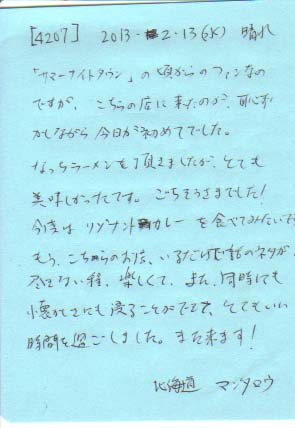 [4207] 2013・2・13(水) 晴れ
「サマーナイトタウン」の頃からのファンなの
ですが、こちらの店に来たのが、恥ず
かしながら今日が初めてでした。
なっちラーメンを頂きましたが、とても
美味しかったです。ごちそうさまでした!
今度はリゾナントカレーを食べてみたいです
もう、こちらのお店、いるだけで話のネタが
尽きない程、楽しくて、また、同時にも
懐かしさにも浸ることができて、とてもいい
時間を過ごしました。また来ます!
北海道 マンタロウ